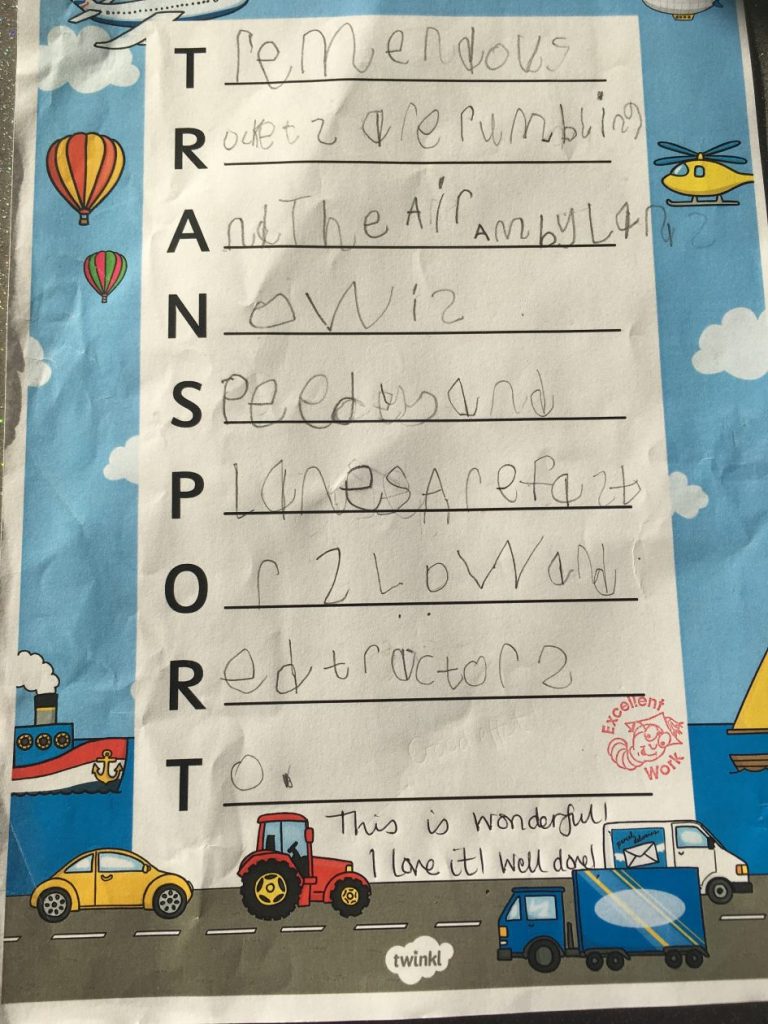 Tremendous
Rockets are rumbling
And The Air Ambylans
Now is
and
Planes Are fast
Or sLow and
Red tractors
To.
Excellent Work
This is wonderful!
I love it! Well done!
twinkl